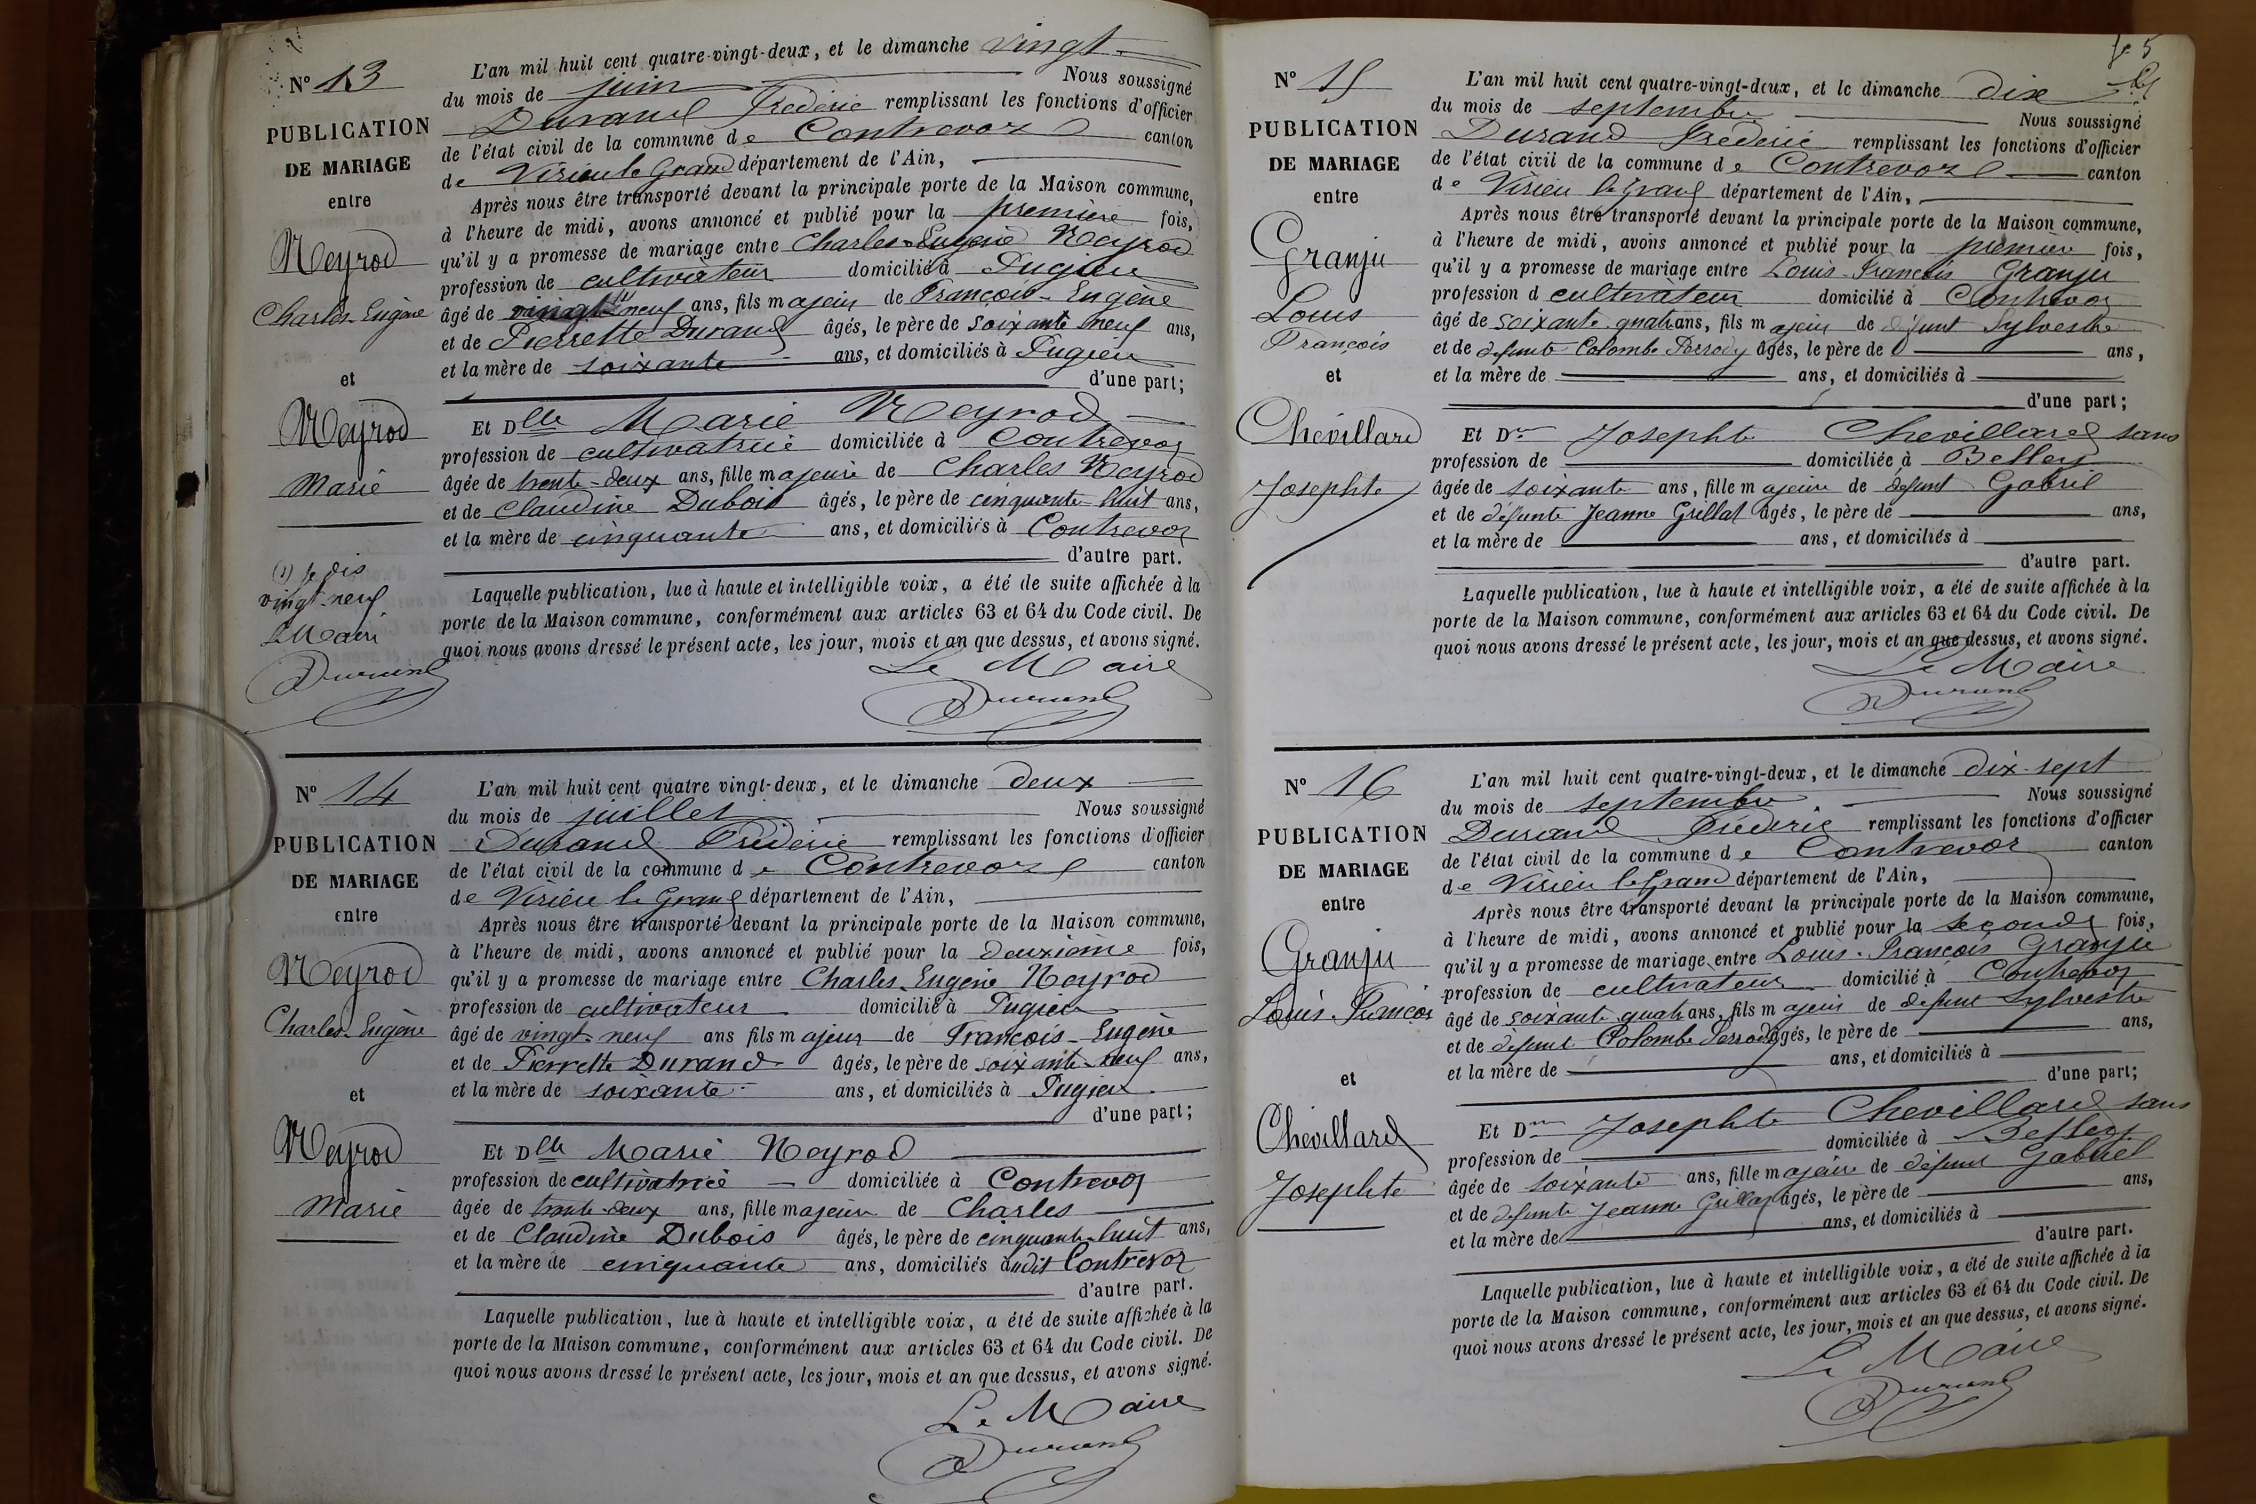 N° 13
PUBLICATION
DE MARIAGE
entre
Neyrod
Charles-Eugène
et
Neyrod
Marie
(1) Je dis
vingt-neuf
Le Maire
Durand
L'an mil huit cent quatre-vingt-deux, et le dimanche vingt
du mois de juin Nous soussigné
Durand Frédéric remplissant les fonctions d'officier
de l'état civil de la commune de Contrevoz canton
de Virieu le Grand département de l'Ain,
Après nous être transporté devant la principale porte de la Maison commune,
à l'heure de midi, avons annoncé et publié pour la première fois,
qu'il y a promesse de mariage entre Charles-Eugène Neyrod
profession de cultivateur domicilié à Pugieu
âgé de neuf ans, fils majeur de François-Eugène
et de Pierrette Durand âgés, le père de soixante neuf ans,
et la mère de soixante ans, et domiciliés à Pugieu
d'une part;
Et Dlle Marie Neyrod
profession de cultivatrice domiciliée à Contrevoz
âgée de trente-deux ans, fille majeure de Charles Neyrod
et de Claudine Dubois âgés, le père de cinquante-huit ans,
et la mère de cinquante ans, et domiciliés à Contrevoz
d'autre part.
Laquelle publication, lue à haute et intelligible voix, a été de suite affichée à la
porte de la Maison commune, conformément aux articles 63 et 64 du Code civil. De
quoi nous avons dressé le présent acte, les jour, mois et an que dessus, et avons signé.
Le Maire
Durand
N° 14
PUBLICATION
DE MARIAGE
entre
Neyrod
Charles-Eugène
et
Neyrod
Marie
L'an mil huit cent quatre vingt-deux, et le dimanche deux
du mois de juillet Nous soussigné
Durand Frédéric remplissant les fonctions d'officier
de l'état civil de la commune de Contrevoz canton
de Virieu le Grand département de l'Ain,
Après nous être transporté devant la principale porte de la Maison commune,
à l'heure de midi, avons annoncé et publié pour la deuxième fois,
qu'il y a promesse de mariage entre Charles-Eugène Neyrod
profession de cultivateur domicilié à Pugieu
âgé de vingt-neuf ans fils majeur de François-Eugène
et de Pierrette Durand âgés, le père de soixante-neuf ans,
et la mère de soixante ans, et domiciliés à Pugieu
d'une part;
Et Dlle Marie Neyrod
profession de cultivatrice domiciliée à Contrevoz
âgée de trente-deux ans, fille majeure de Charles
et de Claudine Dubois âgés, le père de cinquante-huit ans,
et la mère de cinquante ans, domiciliés audit Contrevoz
d'autre part.
Laquelle publication, lue à haute et intelligible voix, a été de suite affichée à la
porte de la Maison commune, conformément aux articles 63 et 64 du Code civil. De
quoi nous avons dressé le présent acte, les jour, mois et an que dessus, et avons signé.
Le Maire
Durand
fo 5
N° 15
PUBLICATION
DE MARIAGE
entre
Granju
Louis
François
et
Chevillard
Josephte
L'an mil huit cent quatre-vingt-deux, et le dimanche dix
du mois de septembre Nous soussigné
Durand Frédéric remplissant les fonctions d'officier
de l'état civil de la commune de Contrevoz canton
de Virieu le Grand département de l'Ain,
Après nous être transporté devant la principale porte de la Maison commune,
à l'heure de midi, avons annoncé et publié pour la première fois,
qu'il y a promesse de mariage entre Louis-François Granju
profession d cultivateur domicilié à Contrevoz
âgé de soixante quatre ans, fils majeur de défunt Sylvestre
et de défunte Colombe Perrody âgés, le père de ans,
et la mère de ans, et domiciliés à
d'une part;
Et Dme Josephte Chevillard sans
profession de domiciliée à Belley
âgée de soixante ans, fille majeure de défunt Gabriel
et de défunte Jeanne Grillat âgés, le père de ans,
et la mère de ans, et domiciliés à
d'autre part.
Laquelle publication, lue à haute et intelligible voix, a été de suite affichée à la
porte de la Maison commune, conformément aux articles 63 et 64 du Code civil. De
quoi nous avons dressé le présent acte, les jour, mois et an que dessus, et avons signé.
Le Maire
Durand
N° 16
PUBLICATION
DE MARIAGE
entre
Granju
Louis-François
et
Chevillard
Josephte
L'an mil huit cent quatre-vingt-deux, et le dimanche dix-sept
du mois de septembre Nous soussigné
Durand Frédéric remplissant les fonctions d'officier
de l'état civil de la commune de Contrevoz canton
de Virieu le Grand département de l'Ain,
Après nous être transporté devant la principale porte de la Maison commune,
à l'heure de midi, avons annoncé et publié pour la seconde fois,
qu'il y a promesse de mariage entre Louis-François Granju
profession de cultivateur domicilié à Contrevoz
âgé de soixante quatre ans, fils majeur de défunt Sylvestre
et de défunte Colombe Perrody âgés, le père de ans,
et la mère de ans, et domiciliés à
d'une part;
Et Dme Josephte Chevillard sans
profession de domiciliée à Belley
âgée de soixante ans, fille majeure de défunt Gabriel
et de défunte Jeanne Grillat âgés, le père de ans,
et la mère de ans, et domiciliés à
d'autre part.
Laquelle publication, lue à haute et intelligible voix, a été de suite affichée à la
porte de la Maison commune, conformément aux articles 63 et 64 du Code civil. De
quoi nous avons dressé le présent acte, les jour, mois et an que dessus, et avons signé.
Le Maire
Durand